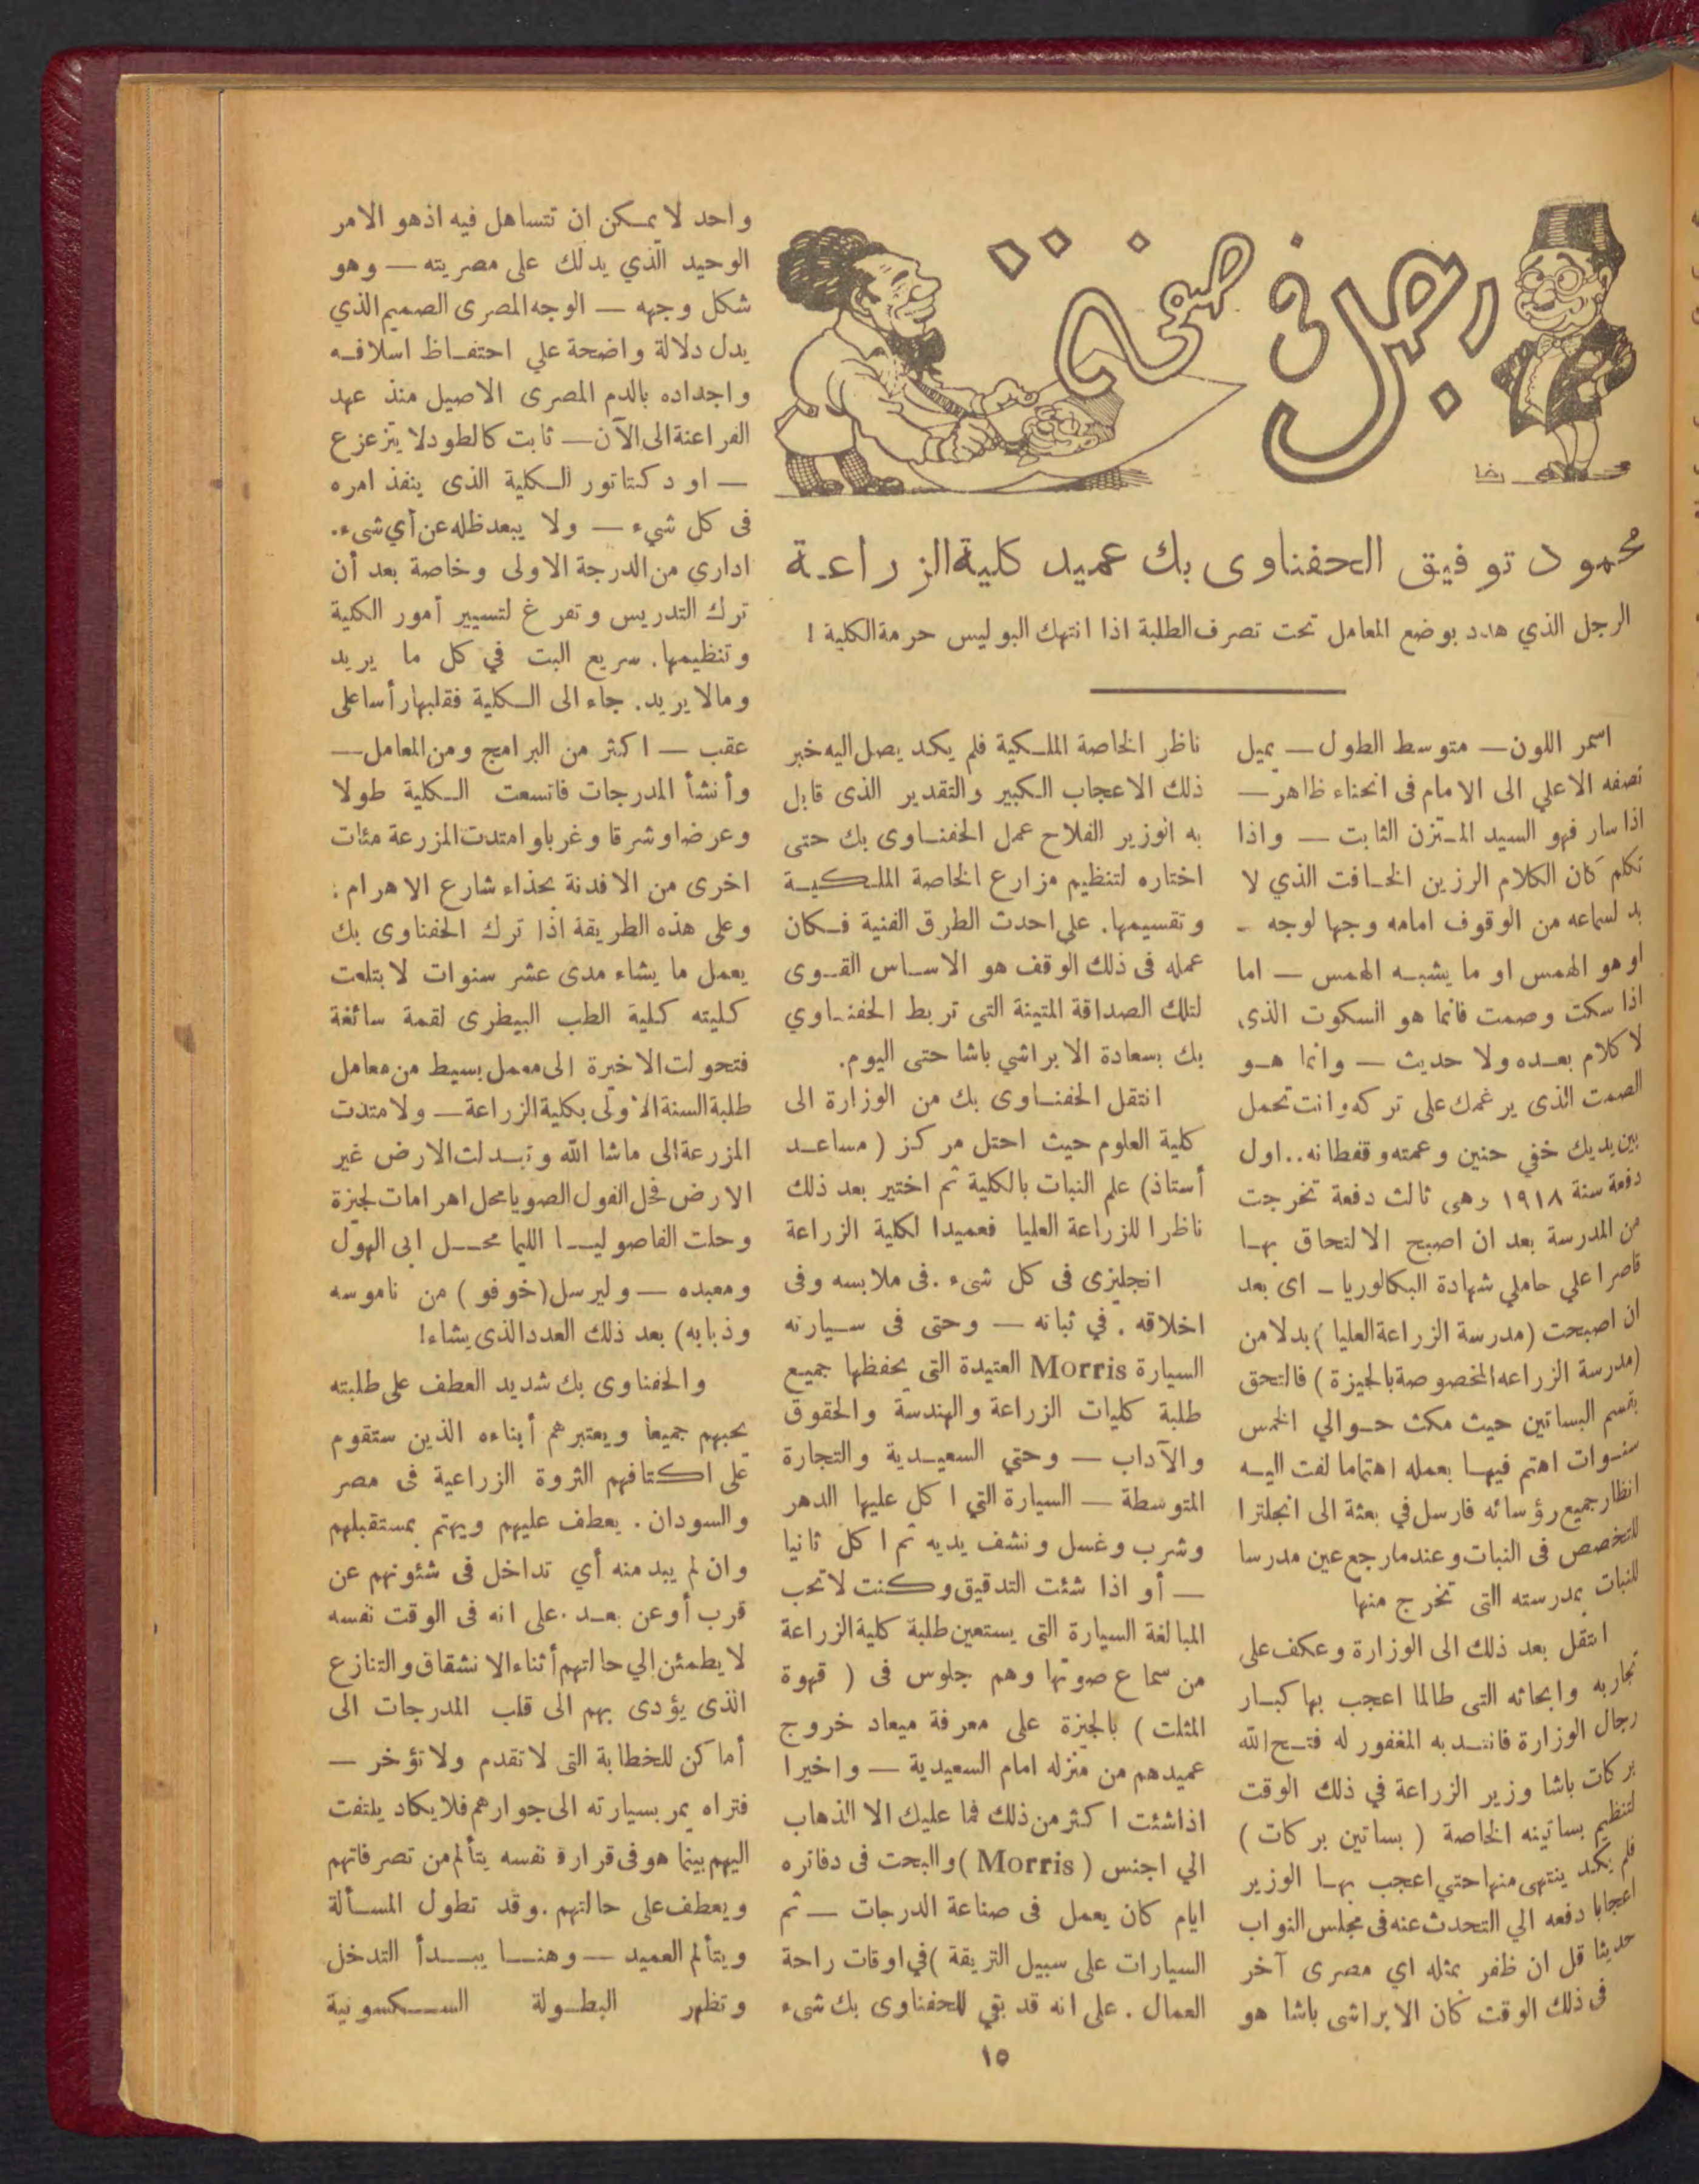 رجل في صفحة
رخا
محمود توفيق الحفناوى بك عميد كلية الزراعة
الرجل الذي هدد بوضع المعامل تحت تصرف الطلبة اذا انتهك البوليس حرمة الكلية !
اسمر اللون — متوسط الطول — يميل
نصفه الاعلي الى الامام فى انحناء ظاهر —
اذا سار فهو السيد المتزن الثابت — واذا
تكلم كان الكلام الرزين الخافت الذي لا
بد لسماعه من الوقوف امامه وجها لوجه -
او هو الهمس او ما يشبه الهمس — اما
اذا سكت وصمت فانما هو السكوت الذى
لا كلام بعده ولا حديث — وانما هو
الصمت الذى يرغمك على تركه وانت تحمل
بين يديك خفي حنين وعمته وقفطانه.. اول
دفعة سنة ١٩١٨ وهى ثالث دفعة تخرجت
من المدرسة بعد ان اصبح الالتحاق بها
قاصرا علي حاملي شهادة البكالوريا - اى بعد
ان اصبحت (مدرسة الزراعة العليا) بدلا من
(مدرسة الزراعه المخصوصة بالجيزة) فالتحق
بقسم البساتين حيث مكث حوالي الخمس
سنوات اهتم فيها بعمله اهتماما لفت اليه
انظار جميع رؤسائه فارسل في بعثة الى انجلترا
للتخصص فى النبات وعندما رجع عين مدرسا
للنبات بمدرسته التى تخرج منها
انتقل بعد ذلك الى الوزارة وعكف على
تجاربه وابحاثه التى طالما اعجب بها كبار
رجال الوزارة فانتدبه المغفور له فتح الله
بركات باشا وزير الزراعة في ذلك الوقت
لتنظيم بساتينه الخاصة (بساتين بركات)
فلم يكد ينتهى منها حتي اعجب بها الوزير
اعجابا دفعه الي التحدث عنه فى مجلس النواب
حديثا قل ان ظفر بمثله اي مصرى آخر
فى ذلك الوقت كان الابراشى باشا هو
ناظر الخاصة الملكية فلم يكد يصل اليه خبر
ذلك الاعجاب الكبير والتقدير الذى قابل
به الوزير الفلاح عمل الحفناوى بك حتى
اختاره لتنظيم مزارع الخاصة الملكية
وتقسيمها. على احدث الطرق الفنية فكان
عمله فى ذلك الوقف هو الاساس القوى
لتلك الصداقة المتينة التى تربط الحفناوي
بك بسعادة الابراشي باشا حتى اليوم.
انتقل الحفناوى بك من الوزارة الى
كلية العلوم حيث احتل مركز (مساعد
أستاذ) علم النبات بالكلية ثم اختير بعد ذلك
ناظرا للزراعة العليا فعميدا لكلية الزراعة
انجليزى فى كل شىء .فى ملابسه وفى
اخلاقه . في ثباته — وحتى فى سيارته
السيارة Morris العتيدة التى يحفظها جميع
طلبة كليات الزراعة والهندسة والحقوق
والآداب — وحتي السعيدية والتجارة
المتوسطة — السيارة التي اكل عليها الدهر
وشرب وغسل ونشف يديه ثم اكل ثانيا
— أو اذا شئت التدقيق وكنت لا تحب
المبالغة السيارة التى يستعين طلبة كلية الزراعة
من سماع صوتها وهم جلوس فى (قهوة
المثلت) بالجيزة على معرفة ميعاد خروج
عميدهم من منزله امام السعيدية — واخيرا
اذا شئت اكثر من ذلك فما عليك الا الذهاب
الي اجنس (Morris) والبحث فى دفاتره
ايام كان يعمل فى صناعة الدرجات — ثم
السيارات على سبيل التريقة )في اوقات راحة
العمال . على انه قد بقي للحفناوى بك شىء
واحد لا يمكن ان تتساهل فيه اذ هو الامر
الوحيد الذي يدلك على مصريته — وهو
شكل وجهه — الوجه المصرى الصميم الذي
يدل دلالة واضحة علي احتفاظ اسلافه
واجداده بالدم المصرى الاصيل منذ عهد
الفراعنة الى الآن — ثابت كالطود لا يتزعزع
— او دكتاتور الكلية الذى ينفذ امره
فى كل شيء — ولا يبعد ظله عن أي شىء.
اداري من الدرجة الاولى وخاصة بعد أن
ترك التدريس وتفرغ لتسيير أمور الكلية
وتنظيمها. سريع البت في كل ما يريد
ومالا يريد. جاء الى الكلية فقلبها رأسا على
عقب — اكثر من البرامج ومن المعامل —
وأنشأ المدرجات فاتسعت الكلية طولا
وعرضا وشرقا وغربا وامتدت المزرعة مئات
اخرى من الافدنة بحذاء شارع الاهرام :
وعلى هذه الطريقة اذا ترك الحفناوى بك
يعمل ما يشاء مدى عشر سنوات لابتلعت
كليته كلية الطب البيطرى لقمة سائغة
فتحولت الاخيرة الى معمل بسيط من معامل
طلبة السنة الاولى بكلية الزراعة — ولامتدت
المزرعة الى ماشا الله وتبدلت الارض غير
الارض فحل الفول الصويا محل اهرامات لجيزة
وحلت الفاصوليا الليما محل ابى الهول
ومعبده — وليرسل (خوفو) من ناموسه
وذبابه) بعد ذلك العدد الذى يشاء!
والحفناوى بك شديد العطف على طلبته
يحبهم جميعا ويعتبرهم أبناءه الذين ستقوم
على اكتافهم الثروة الزراعية فى مصر
والسودان . يعطف عليهم ويهتم بمستقبلهم
وان لم يبد منه أي تداخل فى شئونهم عن
قرب أو عن بعد . على انه فى الوقت نفسه
لا يطمئن الي حالتهم أثناء الانشقاق والتنازع
الذى يؤدى بهم الى قلب المدرجات الى
أماكن للخطابة التى لا تقدم ولا تؤخر —
فتراه يمر بسيارته الى جوارهم فلا يكاد يلتفت
اليهم بينما هو فى قرارة نفسه يتألم من تصرفاتهم
ويعطف على حالتهم .وقد تطول المسألة
ويتألم العميد — وهنا يبدأ التدخل
وتظهر البطولة السكسونية
١٥